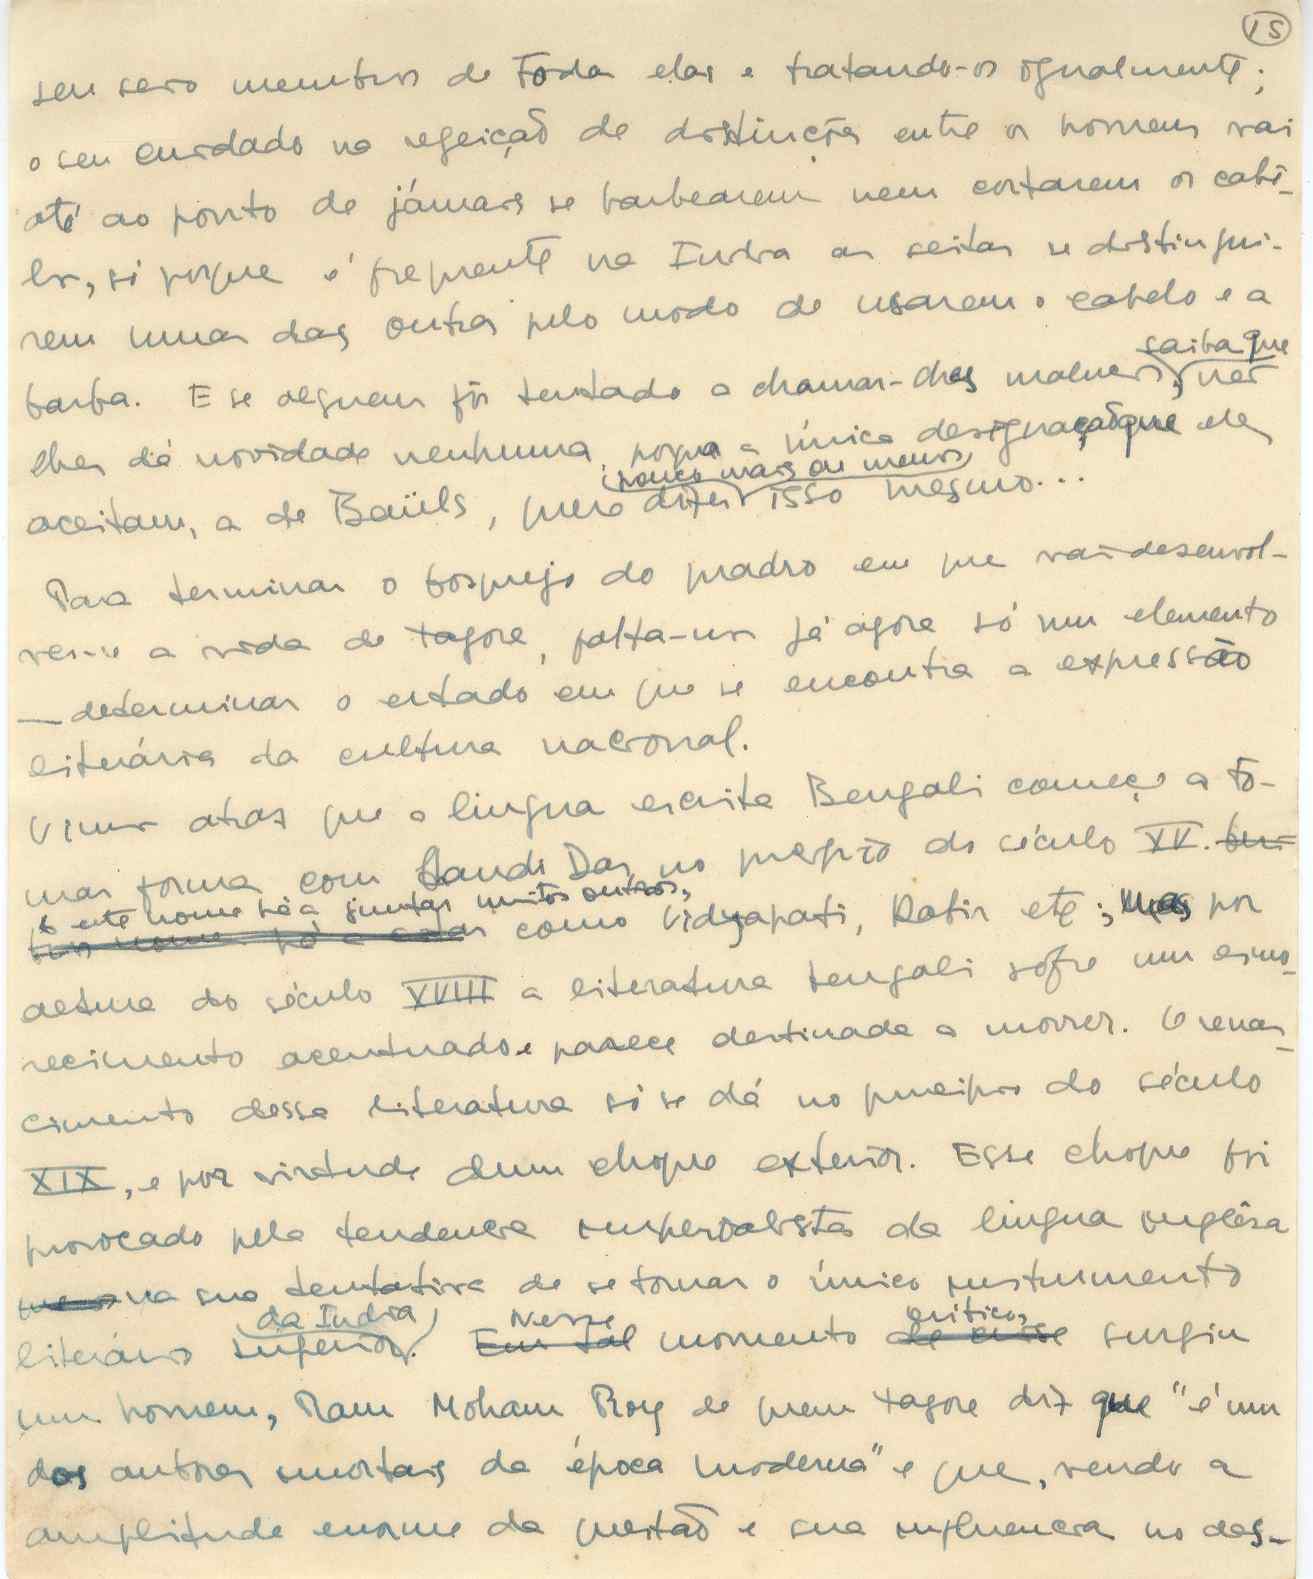 15
seu seio membros de toda elas e tratando-os igualmente;
o seu cuidado na regeição de distinções entre os homens vai
até ao ponto de jámais se barbearem nem cortarem os cabê-
los, só porque é frequente na India as seitas se distingui-
rem umas das outras pelo modo de usarem o cabelo e a
saiba que
barba. E se alguem fôr tentado a chamar-lhes malucos, não
lhes dá novidade nenhuma, porque a única designação que eles
pouco mais ou menos
aceitam, a de Baüls, quere dizer isso mesmo...
Para terminar o bosquejo do quadro em que vai desenvol-
ver-se a vida de Tagore, falta-nos já agora só um elemento
— determinar o estado em que se encontra a expressão
literária da cultura nacional.
Vimos atraz que a lingua escrita Bengali começo a to-
mar forma com Chandi Das, no principio do século XV.
A este nome há a juntar muitos outros,
como Vidyapati, Kabir etc; mas por
altura do século XVIII a literatura bengali sofre um esmo-
recimento acentuado e parece destinada a morrer. O renas-
cimento dessa literatura só se dá no principio do século
XIX, e por virtude dum choque exterior. Esse choque foi
provocado pela tendencia imperialista da lingua inglêsa
na sua tentativa de se tornar o único instrumento
da India Nesse critico,
literário superior. Em tal momento de crise surgiu
um homem, Ram Moham Roy de quem Tagore diz que "é um
dos autores imortais da época moderna" e que, vendo a
amplitude enorme da questão e sua influencia no des-